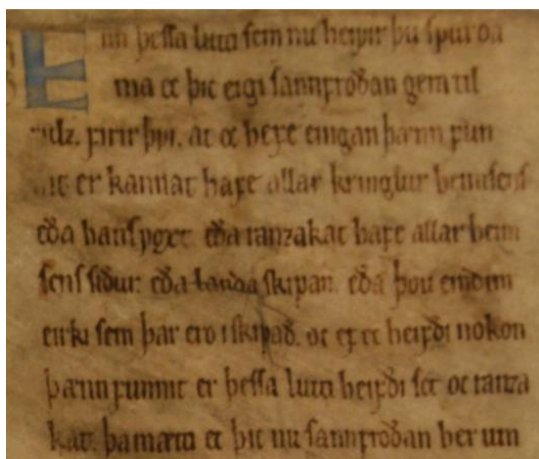 En þeſſa luti ſem nu hefir þu ſpurða
ma ec þic eigi ſannfroðan gera til
fulz. firir þvi. at ec hefe engan þænn fun
nit er kannat hafe allar kringlur heimſenſ
eða hanſ voxt eða ranzakat hafe allar heim
ſenſ ſiður. eða landa ſkipan. eða þou endim
erki ſem þar ero i ſkipað. oc ef ec hefði nokon
þænn funnit er þeſſa luti hefði ſet oc ranza
kat. þa mætti ec þic nu ſannfroðan um